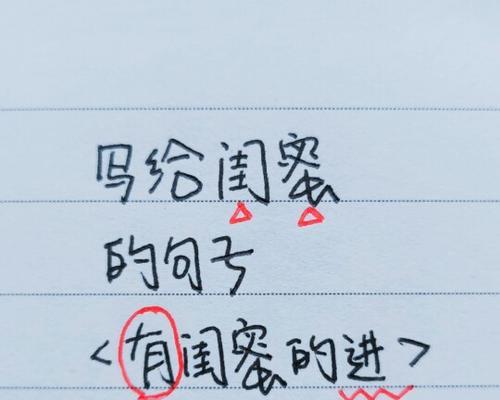 写给闺蜜
的句子
<有闺蜜的进>